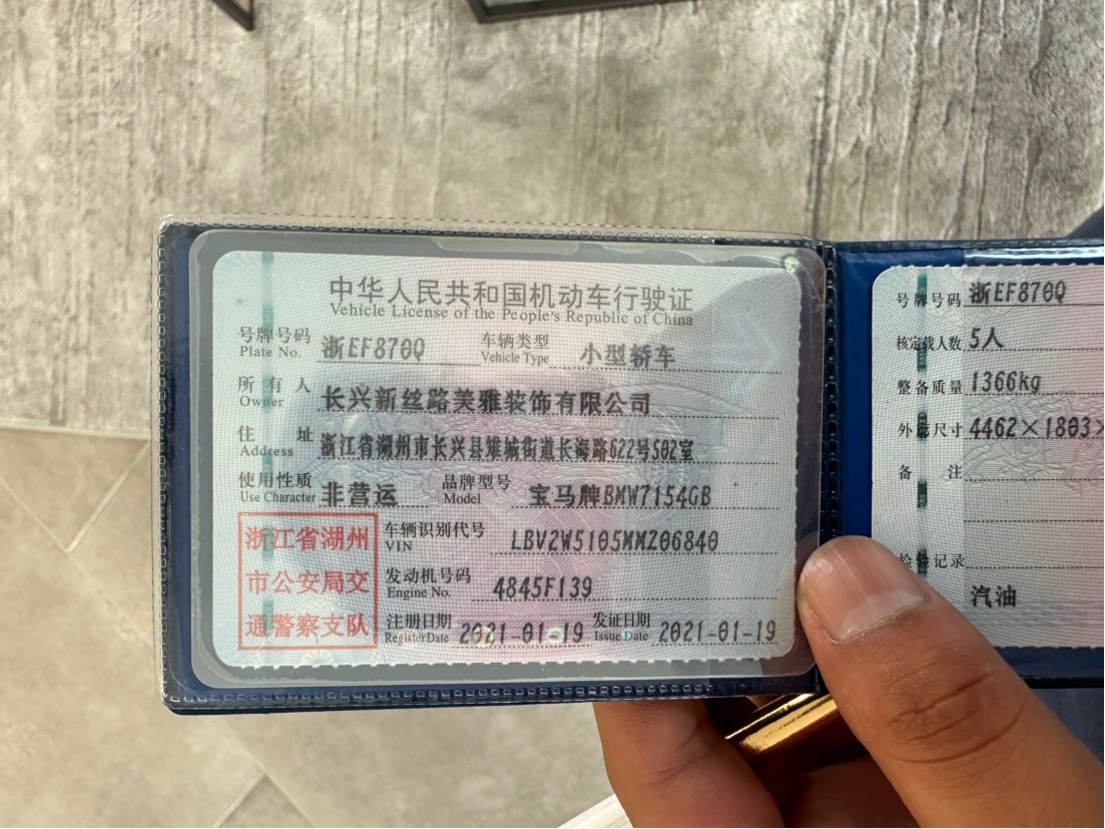 中华人民共和国机动车行驶证
Vehicle License of the People's Republic of China
号牌号码 浙EF870Q 车辆类型 小型轿车
Plate No. Vehicle Type
所有人 长兴新丝路美雅装饰有限公司
Owner
住址 浙江省湖州市长兴县雉城街道长海路622号502室
Address
使用性质 非营运 品牌型号 宝马牌BMW7154GB
Use Character Model
浙江省湖州
市公安局交
通警察支队
车辆识别代号 LBV2W5105MMZ06840
VIN
发动机号码 4845F139
Engine No.
注册日期 2021-01-19 发证日期 2021-01-19
Register Date Issue Date
号牌号码 浙EF870Q
核定载人数 5人
整备质量 1366kg
外廓尺寸 4462×1803×
备注
检验记录
汽油